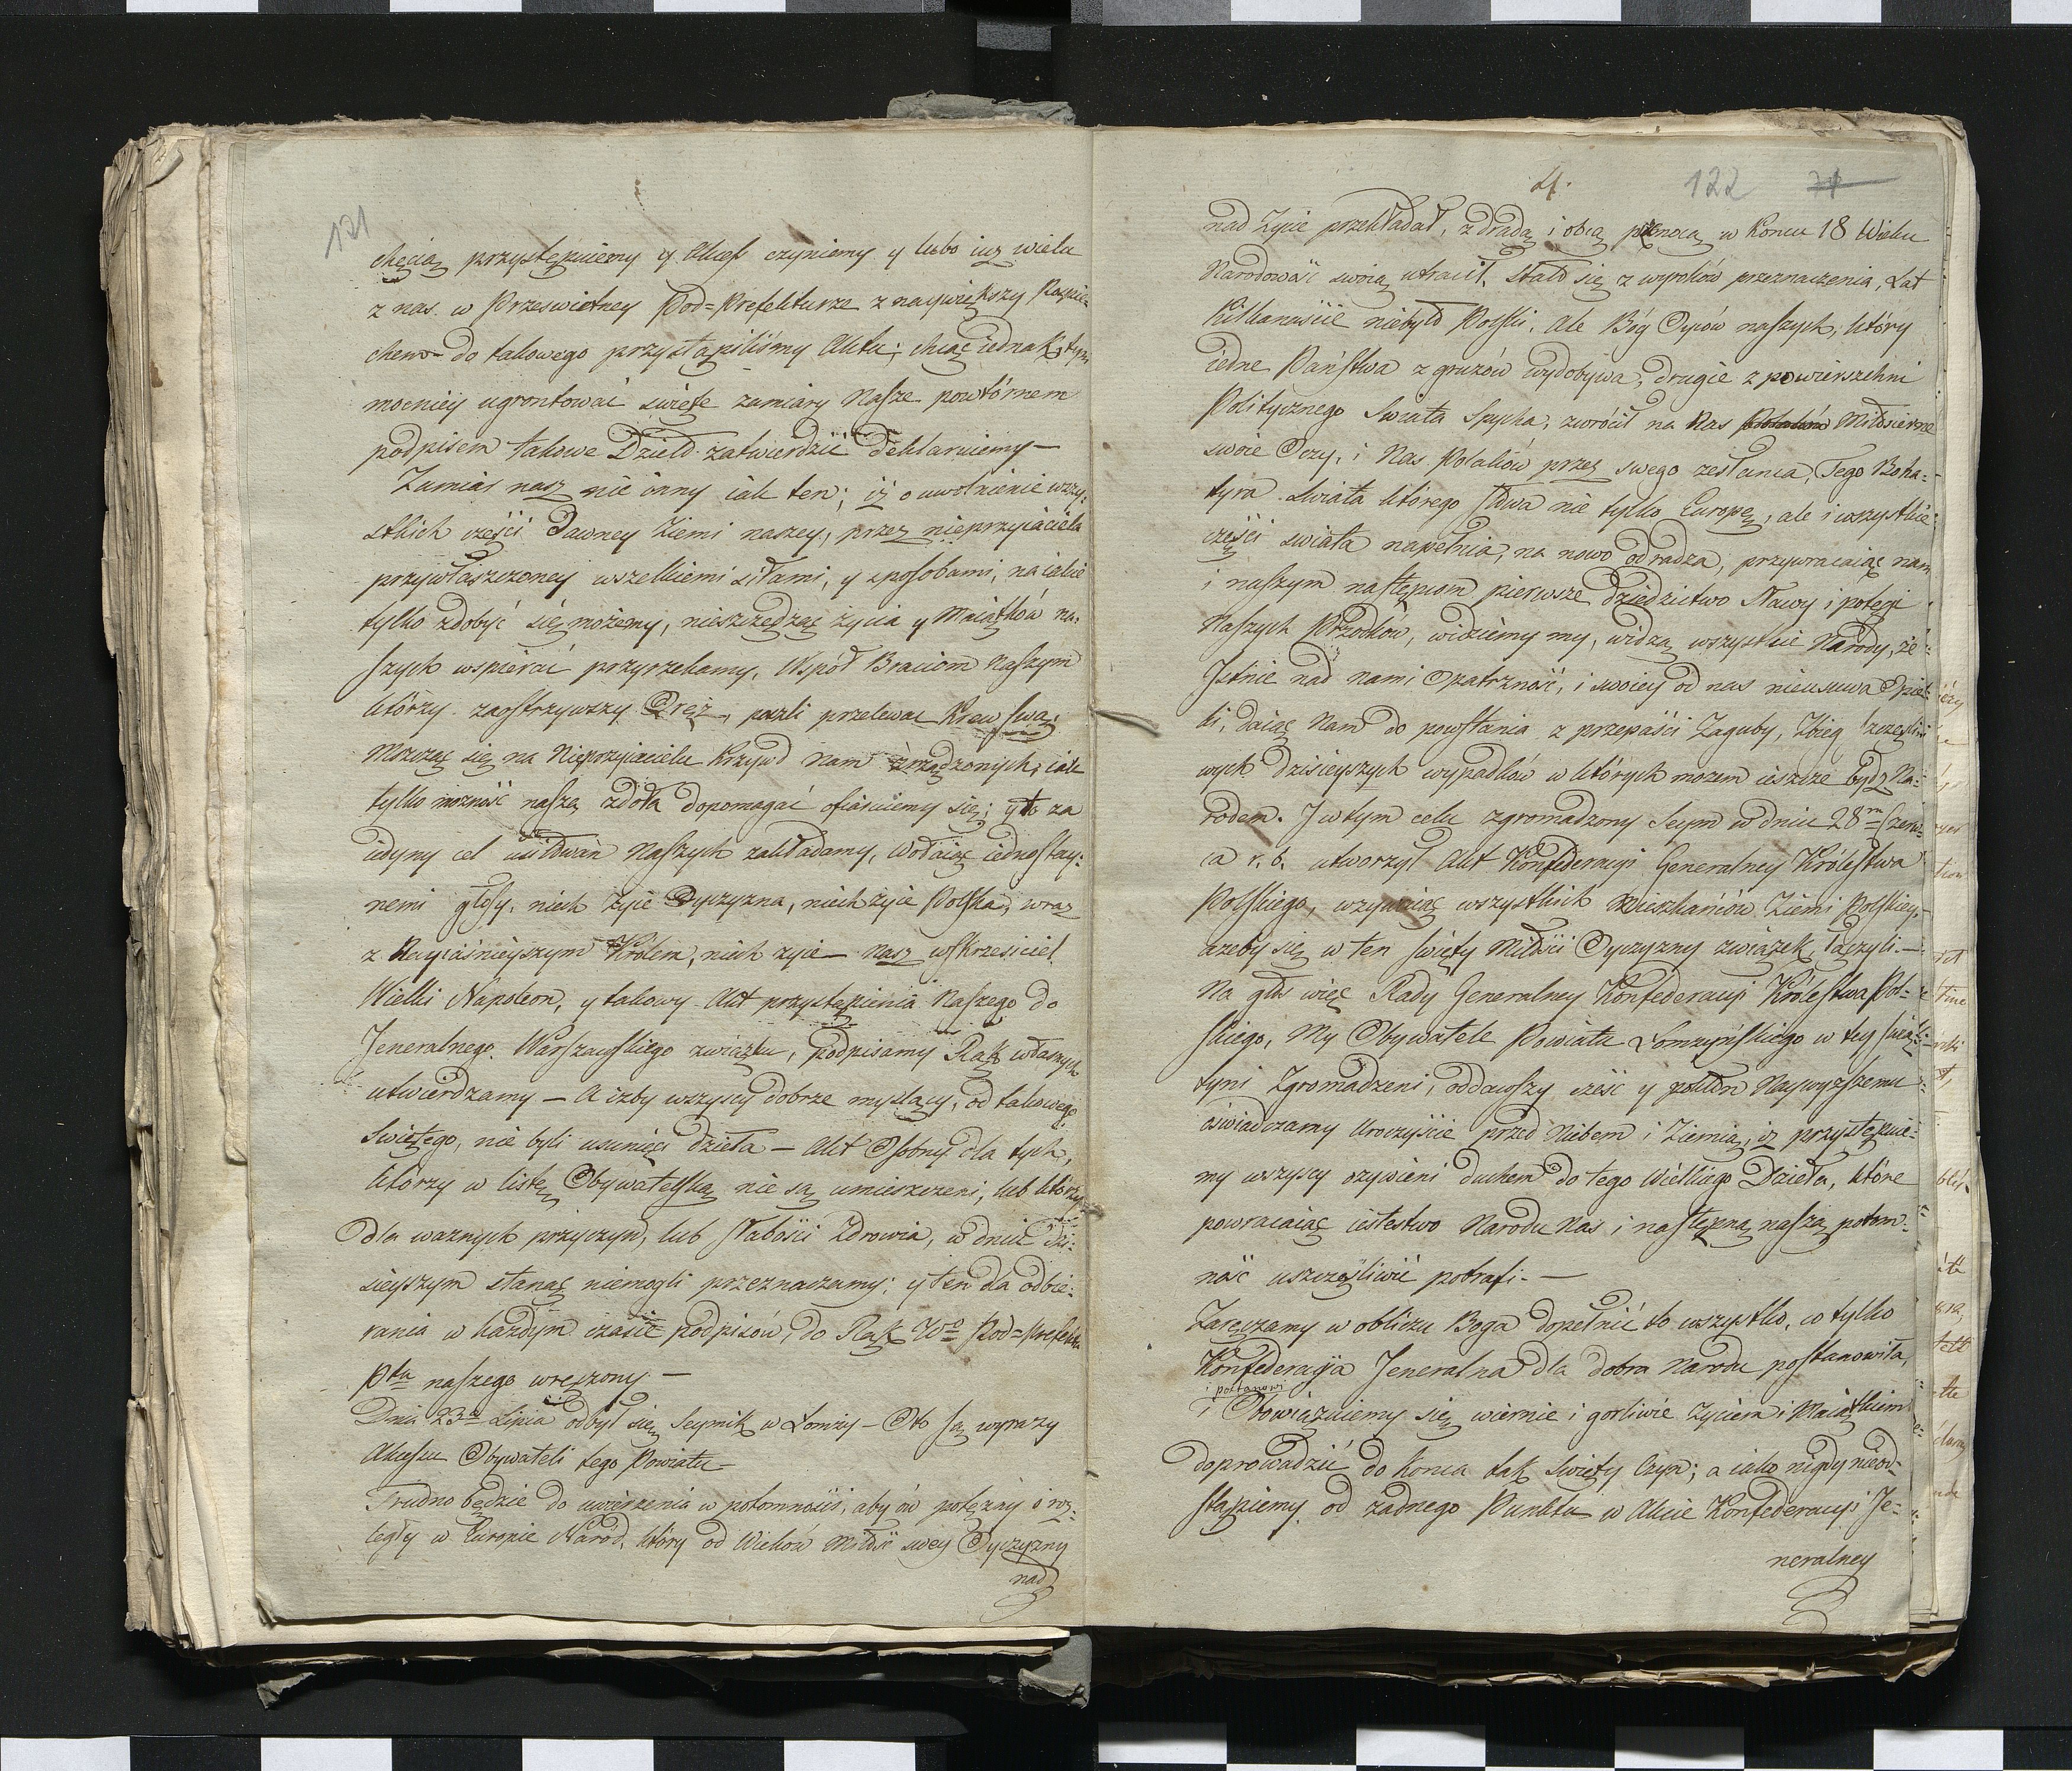 121
chęcią przystępuiemy y Akces czyniemy y lubo iuz wielu
z nas w Przeswietney Pod=Prefekturze z naywiększy Pospie=
chem do takowego przystąpiliśmy Aktu; chcąc iednak tym
mocniey ugrontować swięte zamiary Nasze powtórnem
podpisem takowe Dzieło zatwierdzić deklaruiemy —
Zamiar nasz nie inny iak ten; iż o uwolnienie wszy=
stkich części dawney Ziemi naszey, przez nieprzyiaciela
przywłaszczoney wszelkiemi siłami, y sposobami, na iakie
tylko zdobyć się możemy, nieszczędząc życia y Maiątków na=
szych wspierać przyrzekamy, Wpół Braciom Naszym
którzy zaostrzywszy Oręż, poszli przelewac Krew swą
Mszcząc się na Nieprzyiacielu Krzywd Nam zrządzonych, iak
tylko możność nasza zdoła dopomagać ofiaruiemy się; y to za
iedyny cel usiłowań Naszych zakładamy, wołaiąc iednostay=
nemi głosy, niech żyie Oyczyzna, niech żyie Polska, wraz
z Nayiaśnieyszym Królem, niech zyie — Nasz wskrzesiciel
Wielki Napoleon, y takowy Akt przystąpienia Naszego do
Jeneralnego Warszawskiego związku, podpisamy Rąk własnych
utwierdzamy — A iżby wszyscy dobrze myslący, od takowego
Swiętego, nie byli usunięci dzieła — Akt Osobny dla tych,
którzy w listę Obywatelską nie są umieszczeni, lub którzy
dla waznych przyczyn, lub słabości Zdrowia, w dniu dzi=
sieyszym stanąć niemogli przeznaczamy; y ten dla odbie=
rania w każdym czasie podpisów, do Rąk Wo Pod=Prefekta
Ptu naszego wręczony —
Dnia 23o Lipca odbył się Seymik w Łomży — Oto są wyrazy
Akcessu Obywateli tego Powiatu —
Trudno będzie do uwierzenia w potomności, aby ów potężny i roz=
legły w Europie Naród, który od Wieków Miłość swey Oyczyzny
nad
4.
122
71
nad Zycie przekładał, zdradą i obcą przemocą w Koncu 18 Wieku
Narodowość swoią utracił, stało się z wyroków przeznaczenia, Lat
Kilkanaście niebyło Polski. Ale Bóg Oyców naszych, który
iedne Państwa z gruzów wydobywa, drugie z powierszchni
Politycznego Swiata Spycha, zwrócił na Nas Polaków Miłosierne
swoie Oczy, i Nas Polaków przez swego zesłańca, Tego Boha=
tyra Swiata którego sława nie tylko Europę, ale i wszystkie
części swiata napełnia, na nowo odradza, przywracaiąc nam
i naszym następcom pierwsze dziedzictwo sławy i potęgi
Naszych Przodków, widziemy my, widzą wszystkie Narody, że
Jstnie nad nami Opatrzność, i swoiey od nas nieusuwa Opie=
ki, daiąc Nam do powstania z przepaści Zaguby, Zbieg szczęśli=
wych dzisieyszych wypadków w których mozem ieszcze bydz Na=
rodem. J w tym celu zgromadzony Seym w dniu 28m Czerw=
ca r. b. utworzył Akt Konfederacyi Generalney Królestwa
Polskiego, wzywaiąc wszystkich Mieszkańców Ziemi Polskiey,
azeby się w ten święty Miłości Oyczyzny związek łączyli. —
Na głos więc Rady Generalney Konfederacyi Królestwa Pol=
skiego, My Obywatele Powiatu Łomzyńskiego w tey świą=
tyni Zgromadzeni, oddawszy cześć y pokłon Naywyższemu
oświadczamy uroczyście przed Niebem i Ziemią, iż przystępuie=
my wszyscy ozywieni duchem do tego Wielkiego Dzieła, które
powracaiąc iestestwo Narodu Nas i następną naszą potom=
ność uszczęśliwić potrafi. —
Zaręczamy w obliczu Boga dopełnić to wszystko, co tylko
Konfederacyia Jeneralna dla dobra Narodu postanowiła,
i postanowi
i Obowiązuiemy się wiernie i gorliwie Zyciem i Maiątkiem
doprowadzić do Konca tak Swięty Czyn; a iako nigdy nieod=
stąpiemy od zadnego Punktu w Akcie Konfederacyi Je=
neralney